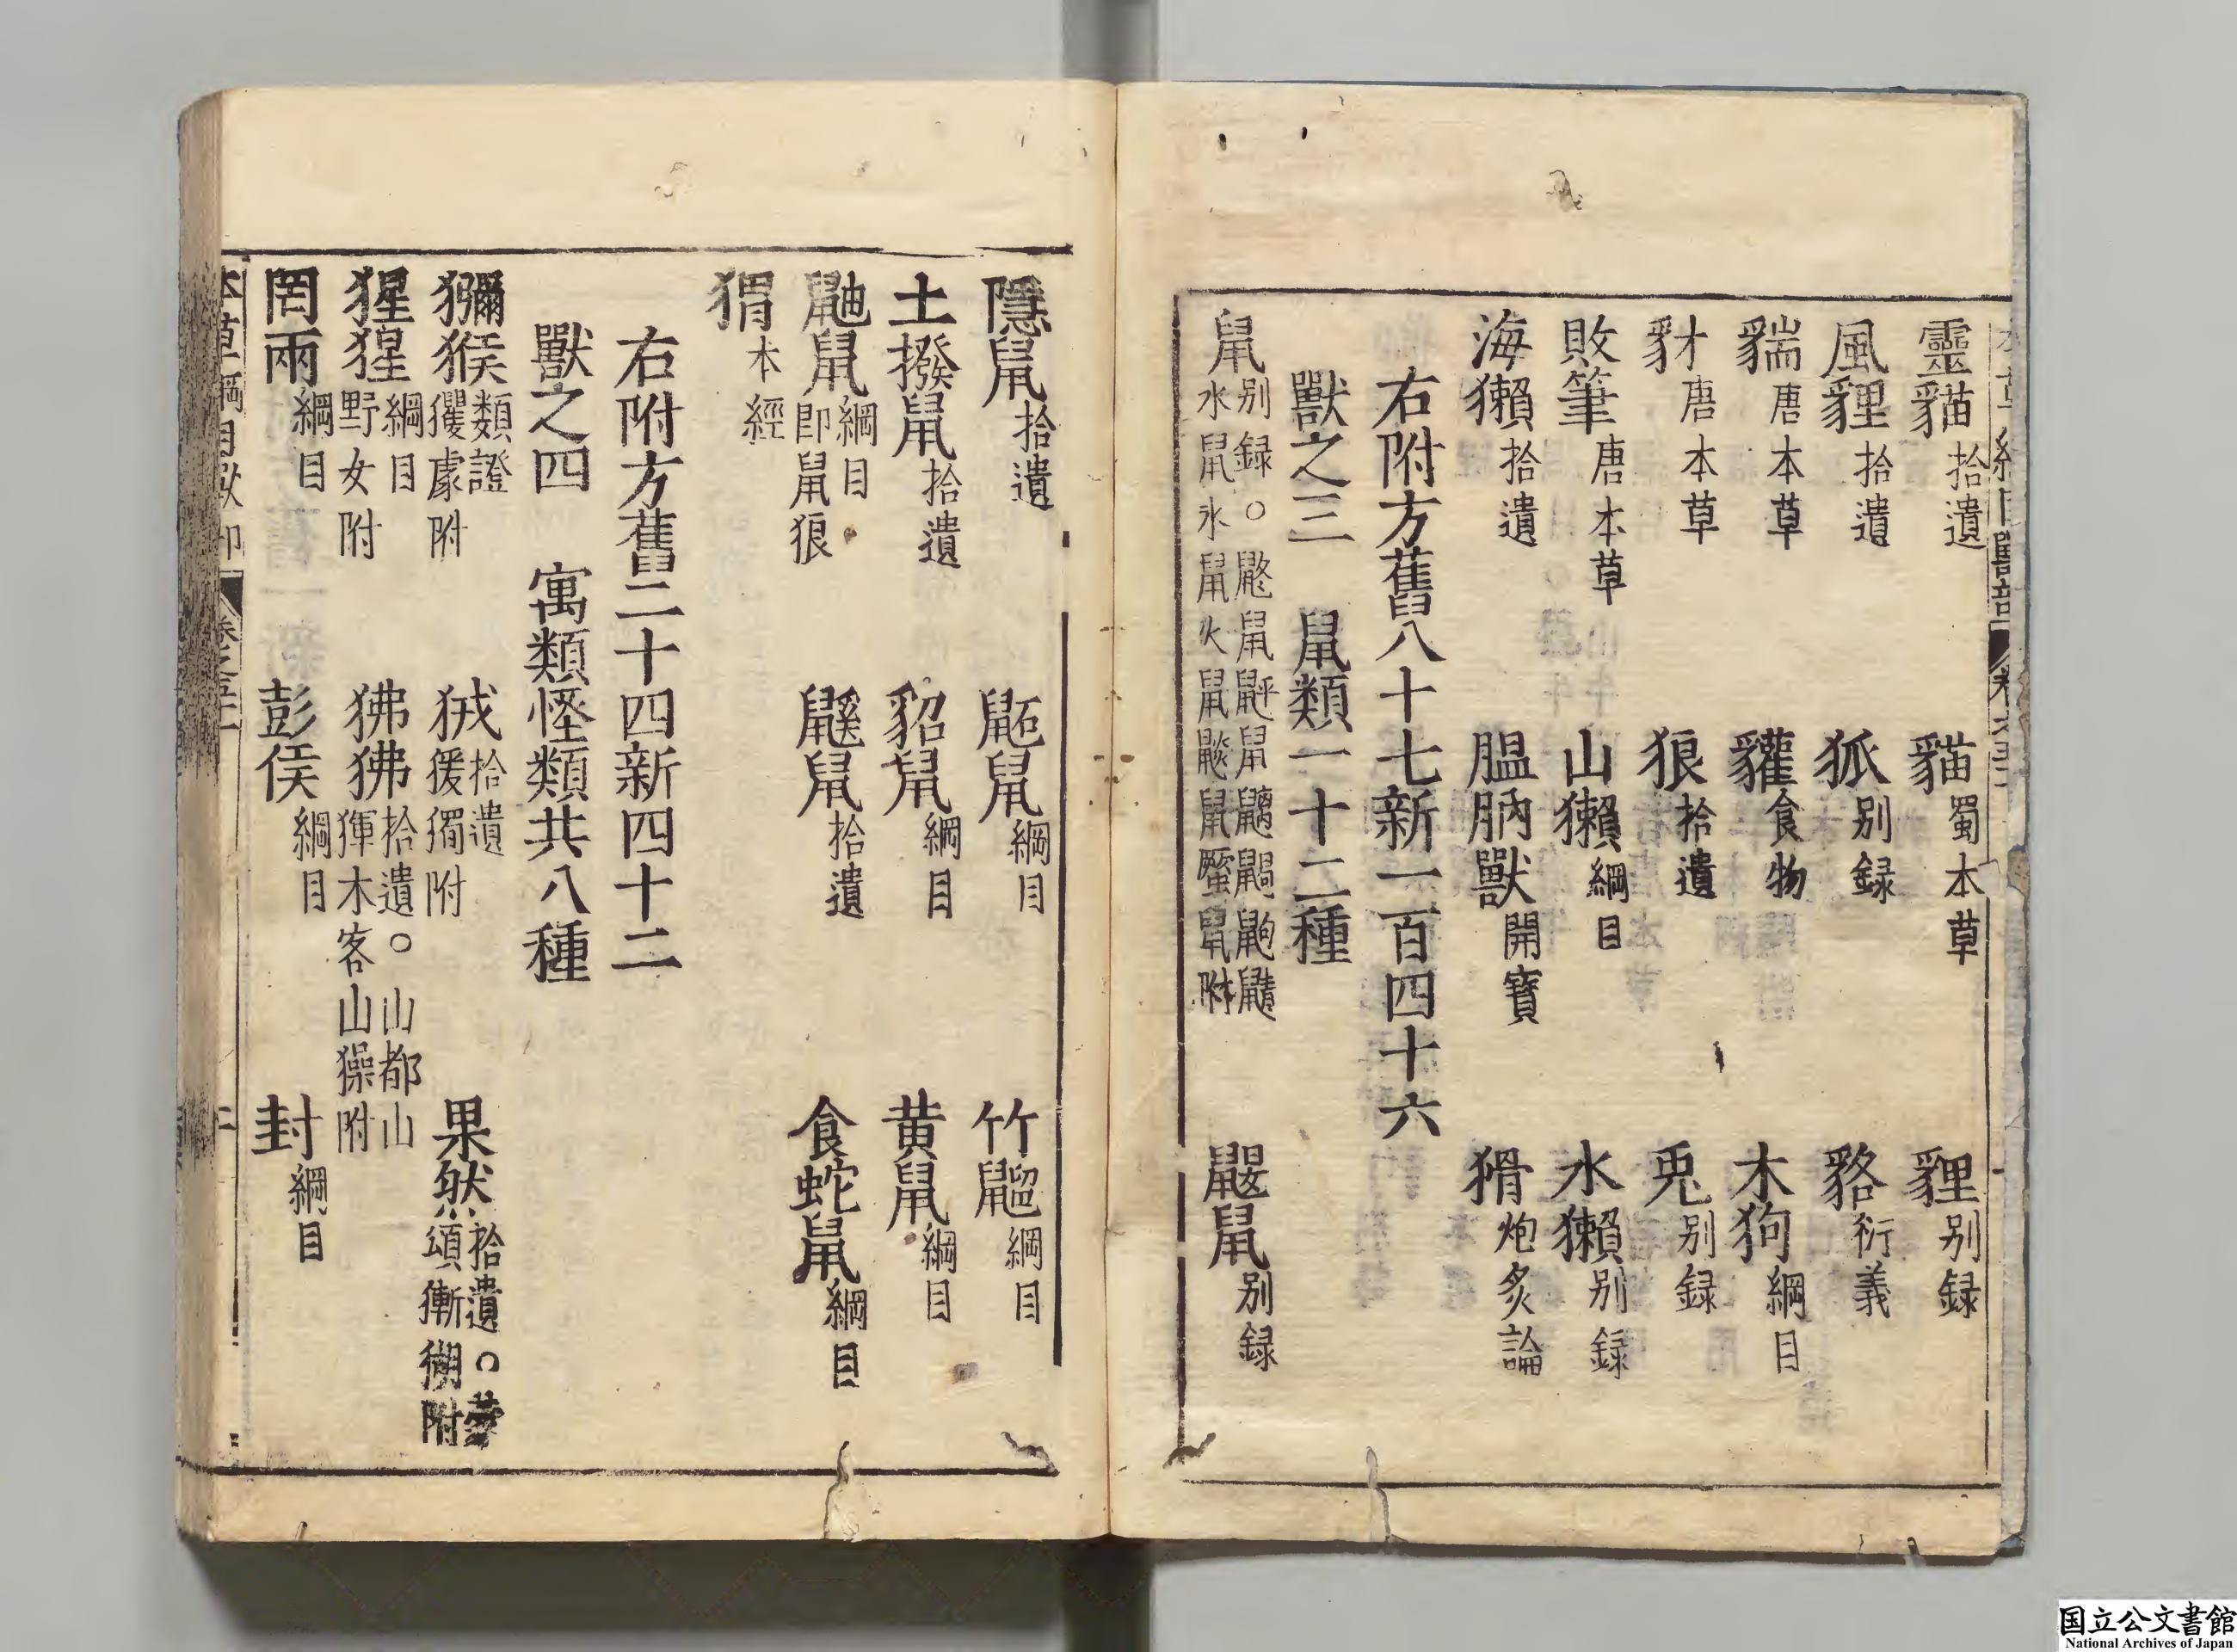 靈貓拾遺 貓蜀本草 貍別録
風貍拾遺 狐別録 貉衍義
貒唐本草 貛食物 木狗綱目
豺唐本草 狼拾遺 兎別録
敗筆唐本草 山獺綱目 水獺別録
海獺拾遺 膃肭獸開寶 猾炮炙論
右附方舊八十七新一百四十六
獸之三 鼠類一十二種
鼠別録○鼨鼠鼮鼠
水鼠氷鼠火鼠鼣鼠蟨鼠附 鼴鼠別録
隱鼠拾遺 鼫鼠綱目 竹䶉綱目
土撥鼠拾遺 貂鼠綱目 黄鼠綱目
鼬鼠綱目即鼠狼 鼷鼠拾遺 食蛇鼠綱目
猬本經
右附方舊二十四新四十二
獸之四 寓類怪類共八種
獼猴類證玃豦附 狨拾遺猨獨附 果然拾遺○蒙頌獑猢附
猩猩綱目野女附 狒狒拾遺○山都山㺐木客山𤢖附
罔兩綱目 彭侯綱目 封綱目
本草綱目
二
国立公文書館
National Archives of Japan